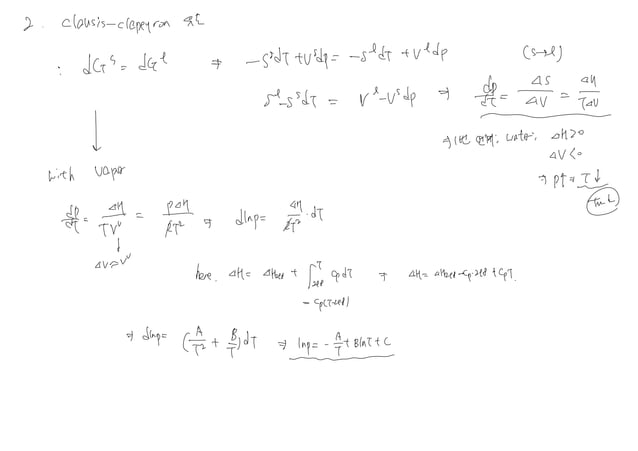 2. clausis-clapeyron 유도
: dG^s = dG^l ⇒ -S^s dT + V^s dp = -S^l dT + V^l dp (S→l)
S^l - S^s dT = V^l - V^s dp ⇒ dp/dT = ΔS/ΔV = ΔH/TΔV
water: ΔH>0
ΔV<0
⇒ p↑ = T↓
with vapor
dp/dT = ΔH/TV^v = pΔH/RT² ⇒ dlnp = ΔH/RT² · dT
ΔV≈V^v
here. ΔH = ΔH298 + ∫298^T Cp dT ⇒ ΔH = ΔH298 - Cp·298 + CpT.
- Cp(T-298)
⇒ dlnp = (A/T² + B/T)dT ⇒ lnp = -A/T + BlnT + C